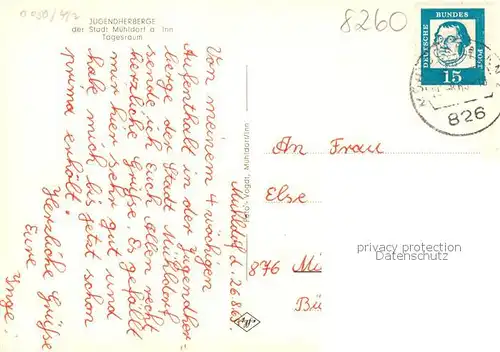 8260
JUGENDHERBERGE
der Stadt Mühldorf a Inn
Tagesraum
DEUTSCHE BUNDESPOST
15
826
Von meinem 4 wöchigen
Aufenthalt in der Jugendher-
berge der Stadt Mühldorf
sende ich Euch Allen recht
herzliche Grüße. Es gefällt
mir hier sehr gut und
habe mich bis jetzt schon
prima erholt.
Herzliche Grüße
Eure
Inge.
Mühldorf d. 26.8.6
Foto - Vogdt, Mühldorf/Inn
An Frau
Else
876 Mi
Bü
privacy protection
watermark